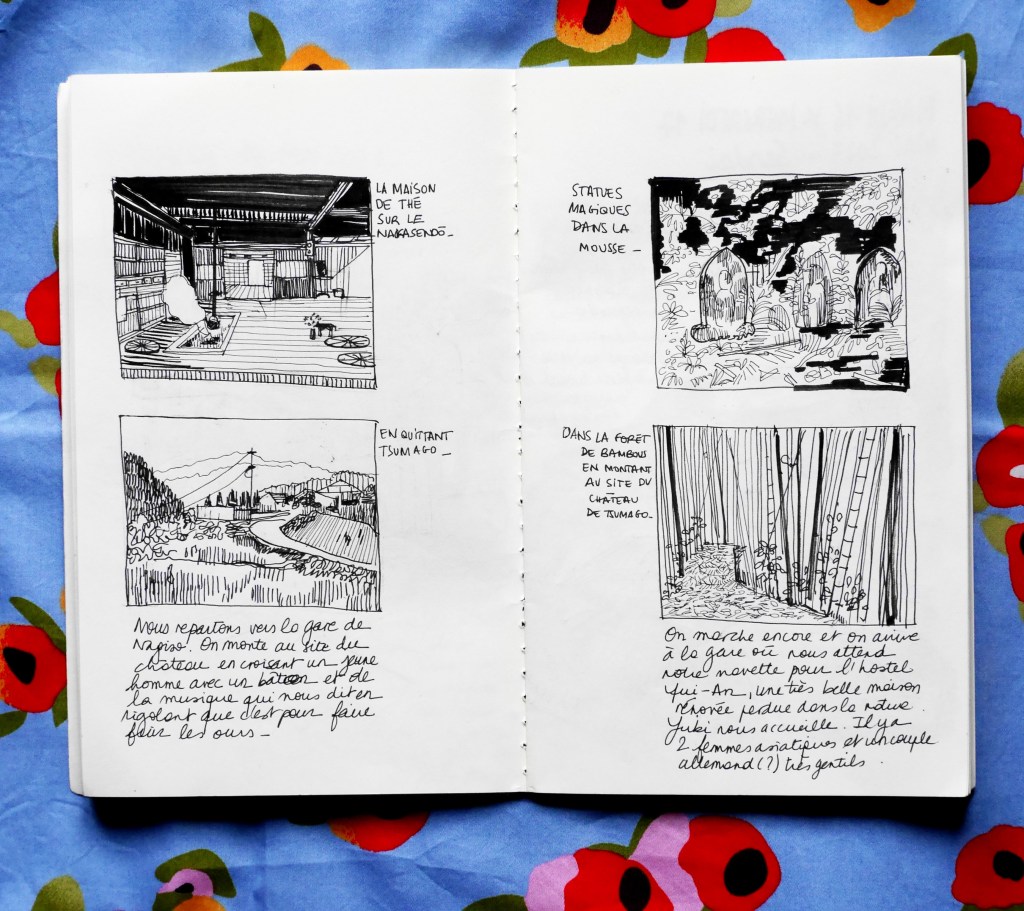 LA MAISON
DE THÉ
SUR LE
NAKASENDŌ_
EN QUITTANT
TSUMAGO_
Nous repartons vers la gare de
Nagiso. On monte au site du
chateau en croisant un jeune
homme avec un bâton et de
la musique qui nous dit en
rigolant que c'est pour faire
fuir les ours_
STATUES
MAGIQUES
DANS LA
MOUSSE_
DANS LA FORÊT
DE BAMBOUS
EN MONTANT
AU SITE DU
CHÂTEAU
DE TSUMAGO_
On marche encore et on arrive
à la gare où nous attend
notre navette pour l'hostel
Yui-An, une très belle maison
rénovée perdue dans la nature.
Yuki nous accueille. Il y a
2 femmes asiatiques et un couple
allemand (?) très gentils.